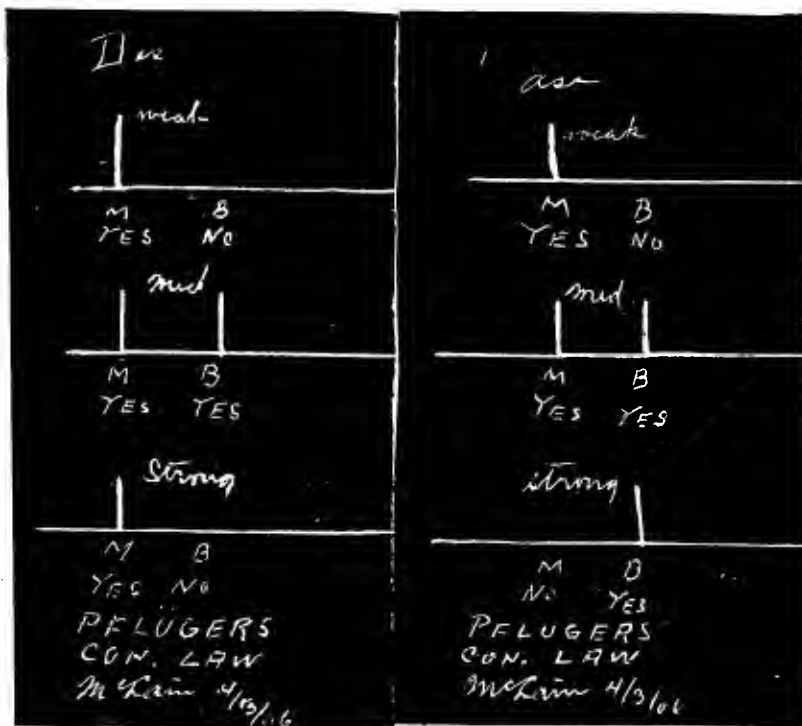 Des
weak
M B
YES NO
Med
M B
YES YES
Strong
M B
YES NO
PFLUGERS
CON. LAW
McLain 4/03/06
asc
weak
M B
YES NO
med
M B
YES YES
strong
M B
NO YES
PFLUGERS
CON. LAW
McLain 4/3/06